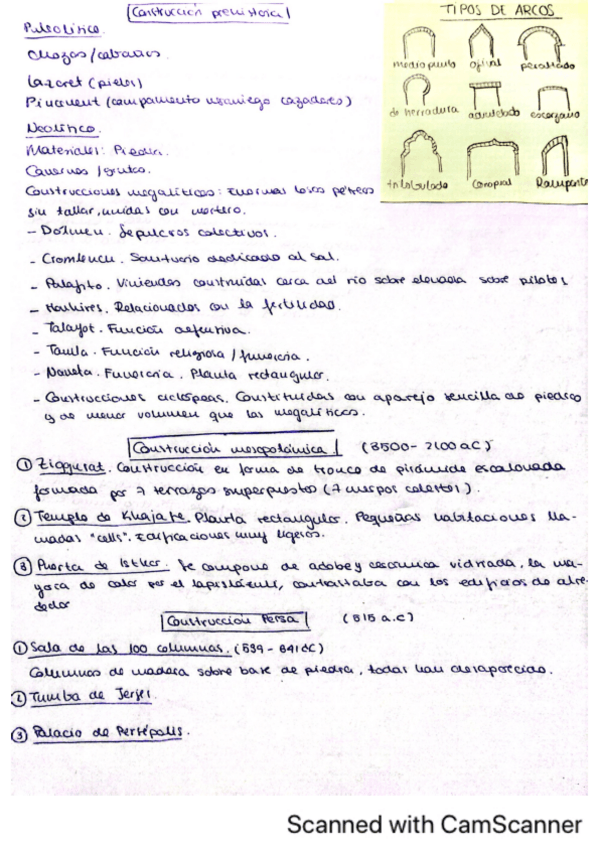 Construcción prehistórica
Paleolítico.
Chozas/cabañas.
Lazaret (pieles)
Pincevent (campamento cazadores)
Neolítico.
Materiales: Piedra.
Cavernas/grutas.
Construcciones megalíticas: Enormes pétreos
sin tallar, unidas con mortero.
- Dolmen. Sepulcros colectivos.
- Cromlech. Santuario dedicado al sol.
- Palafito. Viviendas construidas cerca del río sobre elevada sobre pilotes
- Menhires. Relacionados con la fertilidad.
- Talayot. Función defensiva.
- Taula. Función religiosa/funeraria.
- Naveta. Funeraria. Planta rectangular.
- Construcciones ciclópeas. Constituidas con aparejo sencillo de piedra
y de menor volumen que las megalíticas.
TIPOS DE ARCOS
medio punto ojival peraltado
de herradura adintelado escarzano
trilobulado conopial Rampante
Construcción mesopotámica. (3500-2100 aC)
① Ziggurat. Construcción en forma de tronco de pirámide escalonada
formada por 7 terrazas superpuestas (7 cuerpos celestes).
② Templo de Khafaje. Planta rectangular. Pequeñas habitaciones lla-
madas "cells". Edificaciones muy ligeras.
③ Puerta de Isthar. Se compone de adobe y cerámica vidriada, la ma-
yoría de color por el lapislázuli, contrastaba con los edificios de alre-
dedor
Construcción Persa (515 a.C)
① Sala de las 100 columnas. (
Columnas de madera sobre base de piedra, todas han desaparecido.
② Tumba de Jerjes.
③ Palacio de Persépolis.
Scanned with CamScanner